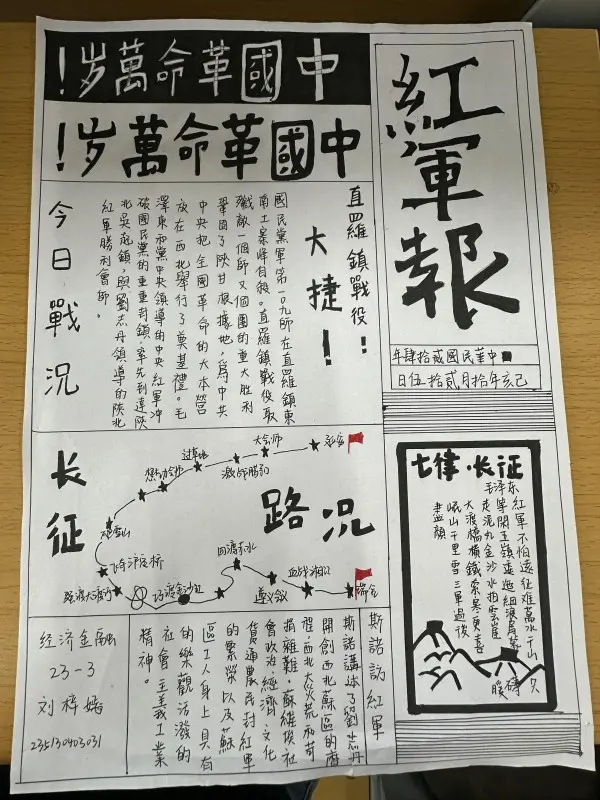 紅軍報
中華民國貳拾肆年
己亥年拾月貳拾伍日
中國革命萬岁！
中國革命萬岁！
直羅鎮戰役！！
大捷！
國民黨军第一〇九師在直羅鎮東
南工嶺峰自殺。直羅鎮戰役取
殲敵一個師又個團的重大胜利
鞏固了陝甘根據地，為中共
中央把全國革命的大本營
放在西北舉行了奠基禮。毛
澤東和黨中央領導的中央紅軍冲
破國民黨的重重封鎖，率先到達陝
北吳起鎮，與劉志丹領導的陝北
紅軍勝利會師。
今日戰況
长征
路况
延安
大会师
激战腊子口
过草地
飞夺泸定桥
强渡大渡河
巧渡金沙江
四渡赤水
遵义会议
血战湘江
瑞金
七律·长征
毛泽东
紅軍不怕遠征难萬水千山
走泥丸金沙水拍雲崖
大渡橋橫鐵索寒更喜
岷山千里雪三軍過後
盡顏
斯諾訪紅軍
斯諾講述了劉志丹
開創西北蘇區的商
程，西北大災荒和苛
捐雜難，蘇維埃社
會政治經濟，文化
貨通農民對紅軍
的繁榮以及蘇
區工人身上具有
的樂觀活潑的
社會主義工業
精神。
经济金融
23-3
刘梓嫣
235130403031